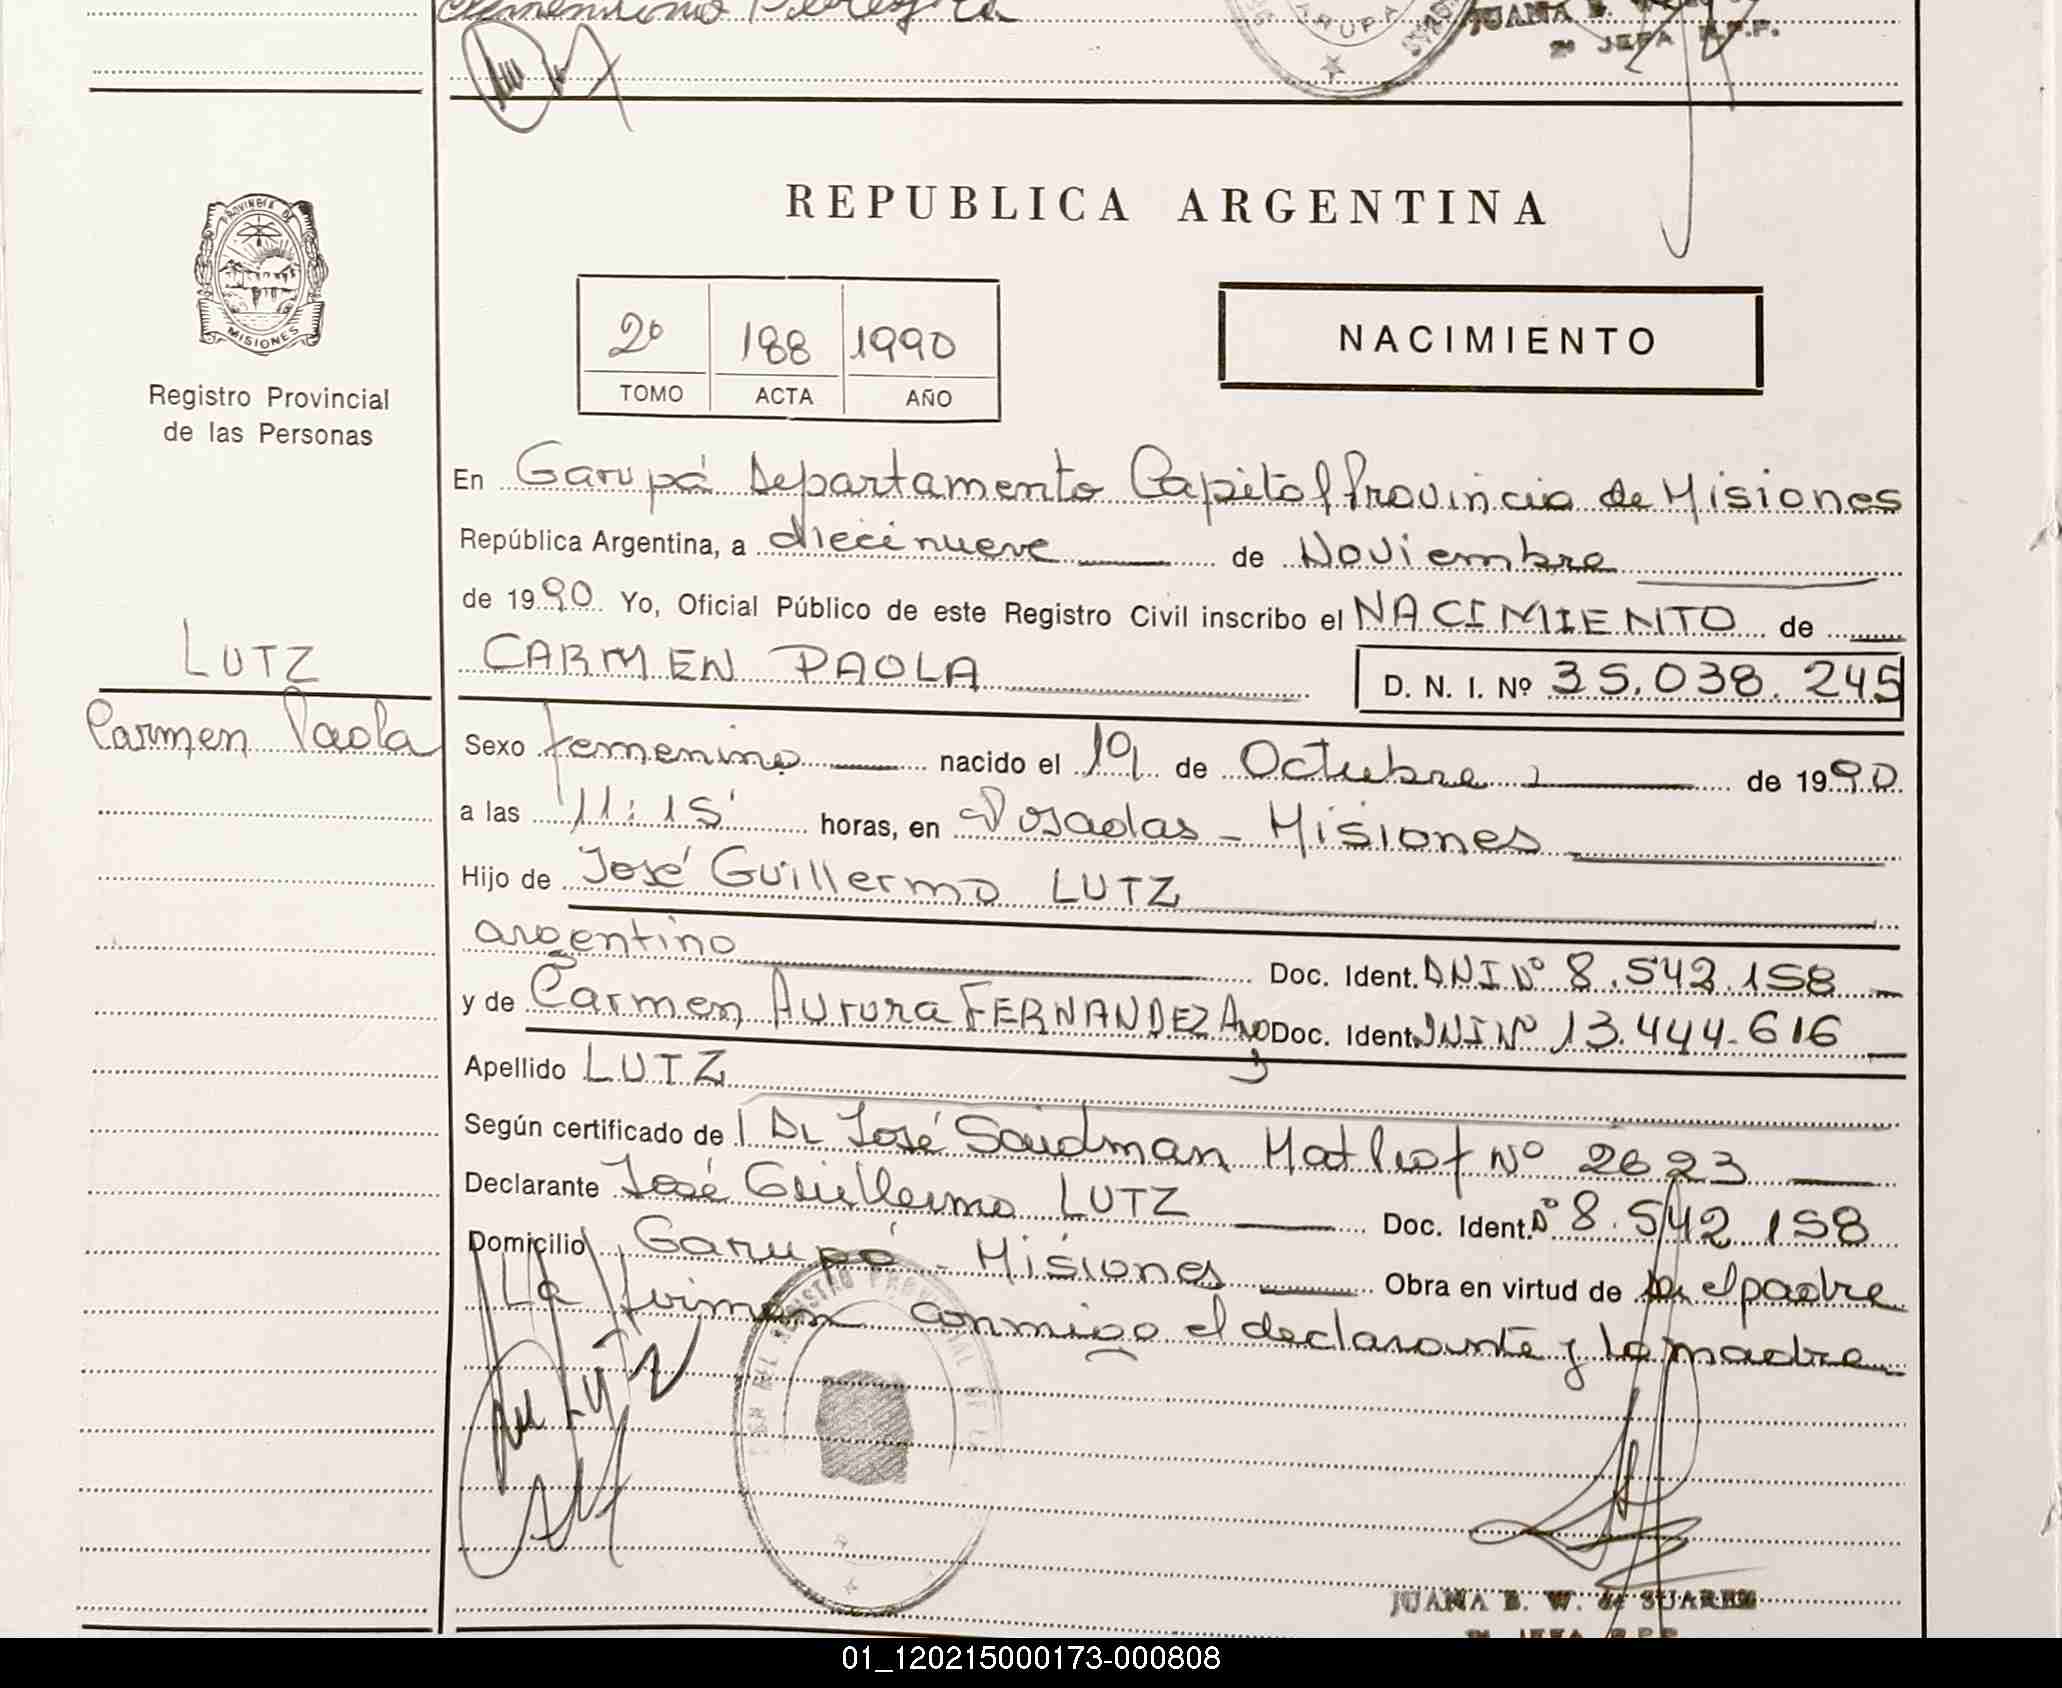 JUANA B. W.
2ª JEFA R.P.P.
GARUPA
PROVINCIA DE
MISIONES
Registro Provincial
de las Personas
LUTZ
Carmen Paola
REPUBLICA ARGENTINA
2º 188 1990
TOMO ACTA AÑO
NACIMIENTO
En Garupá Departamento Capital Provincia de Misiones
República Argentina, a diecinueve de Noviembre
de 1990 Yo, Oficial Público de este Registro Civil inscribo el NACIMIENTO de
CARMEN PAOLA D. N. I. Nº 35.038.245
Sexo femenino nacido el 19 de Octubre de 1990
a las 11:15' horas, en Posadas - Misiones
Hijo de José Guillermo LUTZ
argentino Doc. Ident. DNI Nº 8.542.158
y de Carmen Aurora FERNANDEZ Arg Doc. Ident. DNI Nº 13.444.616
Apellido LUTZ
Según certificado de Dr José Saidman Mat Prof Nº 2623
Declarante José Guillermo LUTZ Doc. Ident. Nº 8.542.158
Domicilio Garupá - Misiones Obra en virtud de ser el padre
La firman conmigo el declarante y la madre
JUANA B. W. de SUAREZ
2ª JEFA R.P.P.
01_120215000173-000808